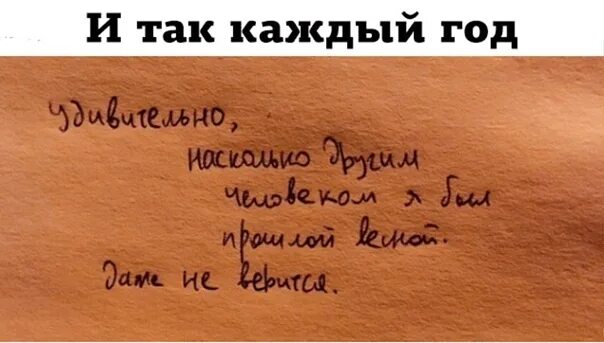 И так каждый год
удивительно,
насколько другим
человеком я был
прошлой весной.
даже не верится.